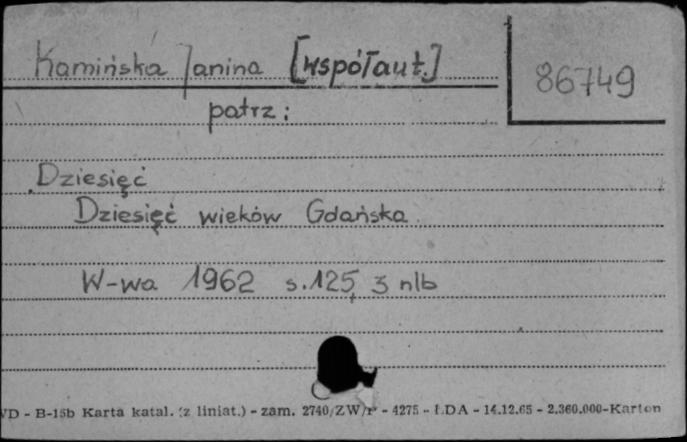 Kamińska Janina [współaut.]
86749
patrz:
Dziesięć
Dziesięć wieków Gdańska
W-wa 1962 s.125, 3 nlb
VD - B-15b Karta katal. (z liniat.) - zam. 2740/ZW/P - 4275 - ŁDA - 14.12.65 - 2.360.000-Karton